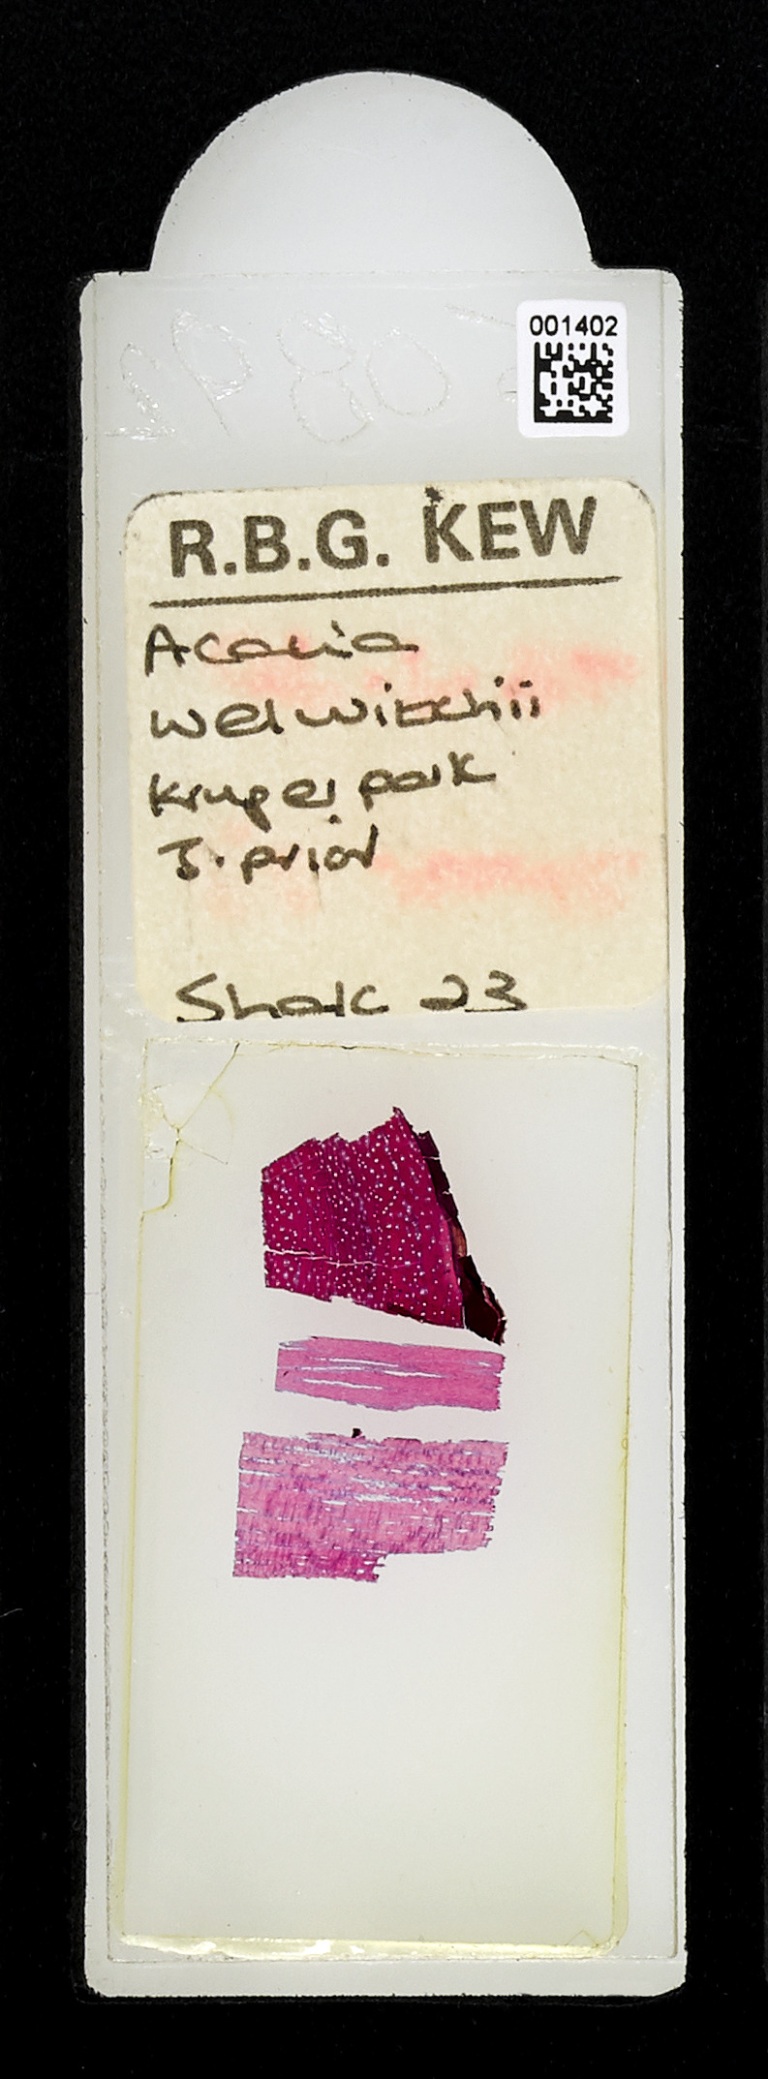 001402
R.B.G. KEW
Acacia
welwitschii
Kruger park
J. prior
Shak 23